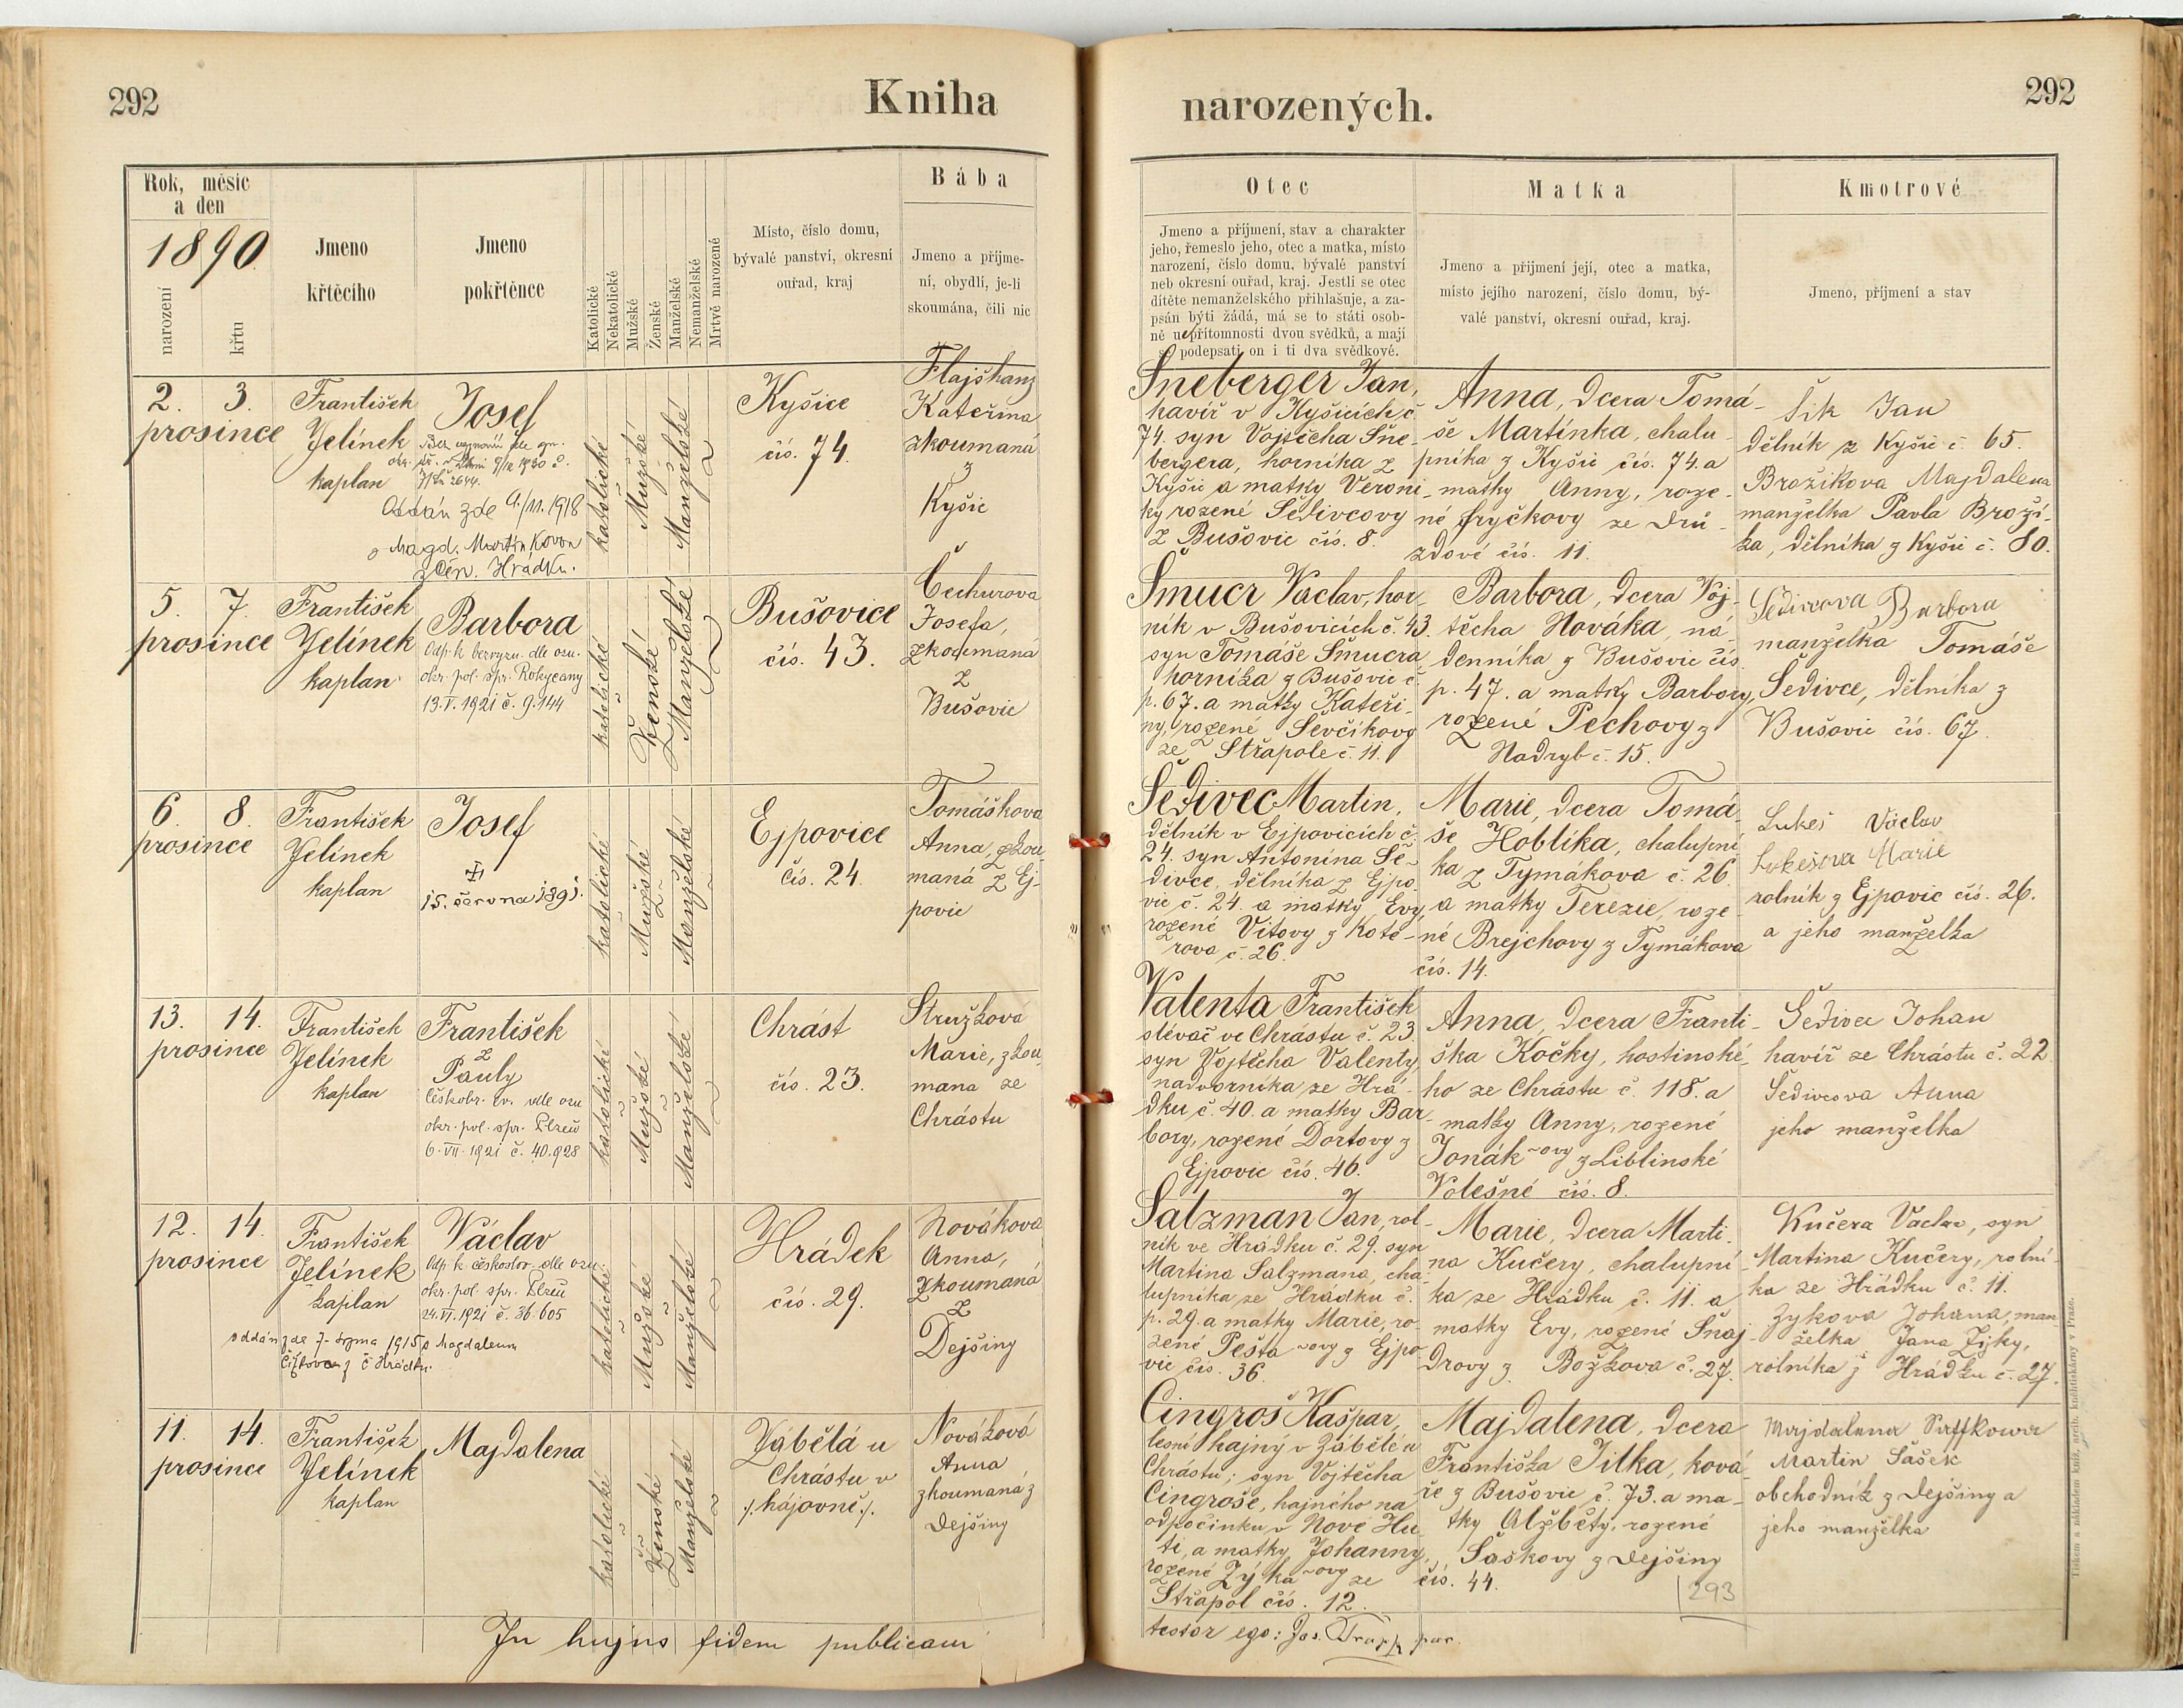 292
Kniha
narozených.
292
Rok, měsíc
a den
1890.
narození
křtu
Jmeno
křtěcího
Jmeno
pokřtěnce
Katolické
Nekatolické
Mužské
Ženské
Manželské
Nemanželské
Mrtvě narozené
Místo, číslo domu,
bývalé panství, okresní
ouřad, kraj
Bába
Jmeno a příjme-
ní, obydlí, je-li
skoumána, čili nic
Otec
Jmeno a příjmení, stav a charakter
jeho, řemeslo jeho, otec a matka, místo
narození, číslo domu, bývalé panství
neb okresní ouřad, kraj. Jestli se otec
dítěte nemanželského přihlašuje, a za-
psán býti žádá, má se to státi osob-
ně u přítomnosti dvou svědků, a mají
se podepsati on i ti dva svědkové.
Matka
Jmeno a příjmení její, otec a matka,
místo jejího narození, číslo domu, bý-
valé panství, okresní ouřad, kraj.
Kmotrové
Jmeno, příjmení a stav
2. 3.
prosince
František
Jelínek
kaplan
Josef
Bez vyznání dle
Oddán zde 9/11.1918
s Magd. Martínkovou
z Čer. Hrádku.
katolické
Mužské
Manželské
Kyšice
čís. 74.
Flajšhanz
Kateřina
zkoumaná
z
Kyšic
Šneberger Jan,
havíř v Kyšicích č.
74. syn Vojtěcha Šne-
bergera, horníka z
Kyšic a matky Veroni-
ky rozené Šedivcovy
z Bušovic čís. 8.
Anna, dcera Tomá-
še Martínka, chalu-
pníka z Kyšic čís. 74. a
matky Anny, roze-
né Fryčkovy ze Drů-
zdové čís. 11.
Šik Jan
dělník z Kyšic č. 65.
Brožíkova Majdalena
manželka Pavla Broží-
ka, dělníka z Kyšic č. 80.
5. 7.
prosince
František
Jelínek
kaplan
Barbora
Odp. k bezvyzn. dle ozn.
okr. pol. spr. Rokycany
13.V.1921 č. 9.144
katolické
Ženské
Manželské
Bušovice
čís. 43.
Čechurova
Josefa,
zkoumaná
z
Bušovic
Šmucr Václav, hor-
ník v Bušovicích č. 43.
syn Tomáše Šmucra
horníka z Bušovic č.
p. 67. a matky Kateři-
ny, rozené Ševčíkovy
ze Střapole č. 11.
Barbora, dcera Voj-
těcha Nováka, ná-
denníka z Bušovic čís.
p. 47. a matky Barbory,
rozené Pechovy z
Nadryb č. 15.
Šedivcova Barbora
manželka Tomáše
Šedivce, dělníka z
Bušovic čís. 67.
6. 8.
prosince
František
Jelínek
kaplan
Josef
15. června 1891.
katolické
Mužské
Manželské
Ejpovice
čís. 24.
Tomáškova
Anna, zkou-
maná z Ej-
povic
Šedivec Martin,
dělník v Ejpovicích č.
24. syn Antonína Še-
divce, dělníka z Ejpo-
vic č. 24. a matky Evy,
rozené Vítovy z Kote-
rova č. 26.
Marie, dcera Tomá-
še Hoblíka, chalupní-
ka z Tymákova č. 26.
a matky Terezie, roze-
né Brejchovy z Tymákova
čís. 14.
Lukeš Václav
Lukešova Marie
rolník z Ejpovic čís. 26.
a jeho manželka
13. 14.
prosince
František
Jelínek
kaplan
František
z
Pauly
Českobr. ev. dle ozn.
okr. pol. spr. Plzeň
6.VII.1921 č. 40.928
katolické
Mužské
Manželské
Chrást
čís. 23.
Stružková
Marie, zkou-
mana ze
Chrástu
Valenta František
slévač ve Chrástu č. 23.
syn Vojtěcha Valenty,
nadvorníka ze Hrá-
dku č. 40. a matky Bar-
bory, rozené Dortovy z
Ejpovic čís. 46.
Anna, dcera Franti-
ška Kočky, hostinské-
ho ze Chrástu č. 118. a
matky Anny, rozené
Jonák~ovy z Liblinské
Volešné čís. 8.
Šedivec Johan
havíř ze Chrástu č. 22
Šedivcova Anna
jeho manželka
12. 14.
prosince
František
Jelínek
kaplan
Václav
Odp. k českoslov. dle ozn.
okr. pol. spr. Plzeň
24.VI.1921 č. 36.605
oddán zde 7. srpna 1915 s Magdalenou
Čížkovou z Č Hrádku.
katolické
Mužské
Manželské
Hrádek
čís. 29.
Nováková
Anna,
zkoumaná
z
Dejšiny
Salzman Jan, rol-
ník ve Hrádku č. 29. syn
Martina Salzmana, cha-
lupníka ze Hrádku č.
p. 29. a matky Marie, ro-
zené Pešta~ovy z Ejpo-
vic čís. 36.
Marie, dcera Marti-
na Kučery, chalupní-
ka ze Hrádku č. 11. a
matky Evy, rozené Šnaj-
drovy z Božkova č. 27.
Kučera Václav, syn
Martina Kučery, rolní-
ka ze Hrádku č. 11.
Zykova Johana, man-
želka Jana Zyky,
rolníka z Hrádku č. 27.
11. 14.
prosince
František
Jelínek
kaplan
Majdalena
katolické
Ženské
Manželské
Zábělá u
Chrástu v
/:hájovně:/.
Nováková
Anna
zkoumaná z
Dejšiny
Cingroš Kašpar,
lesní hajný v Zábělé u
Chrástu; syn Vojtěcha
Cingroše, hajného na
odpočinku v Nové Hu-
ti, a matky Johanny,
rozené Zýka~ovy ze
Střapól čís. 12.
Majdalena, dcera
Františka Jílka, ková-
ře z Bušovic č. 73. a ma-
tky Alžběty, rozené
Šaškovy z Dejšiny
čís. 44.
Majdalena
Martin Šašek
obchodník z Dejšiny a
jeho manželka
293
In hujus fidem publicam
testor ego: Jos. Trapp par.
Tiskem a nákladem kníž. arcib. knihtiskárny v Praze.